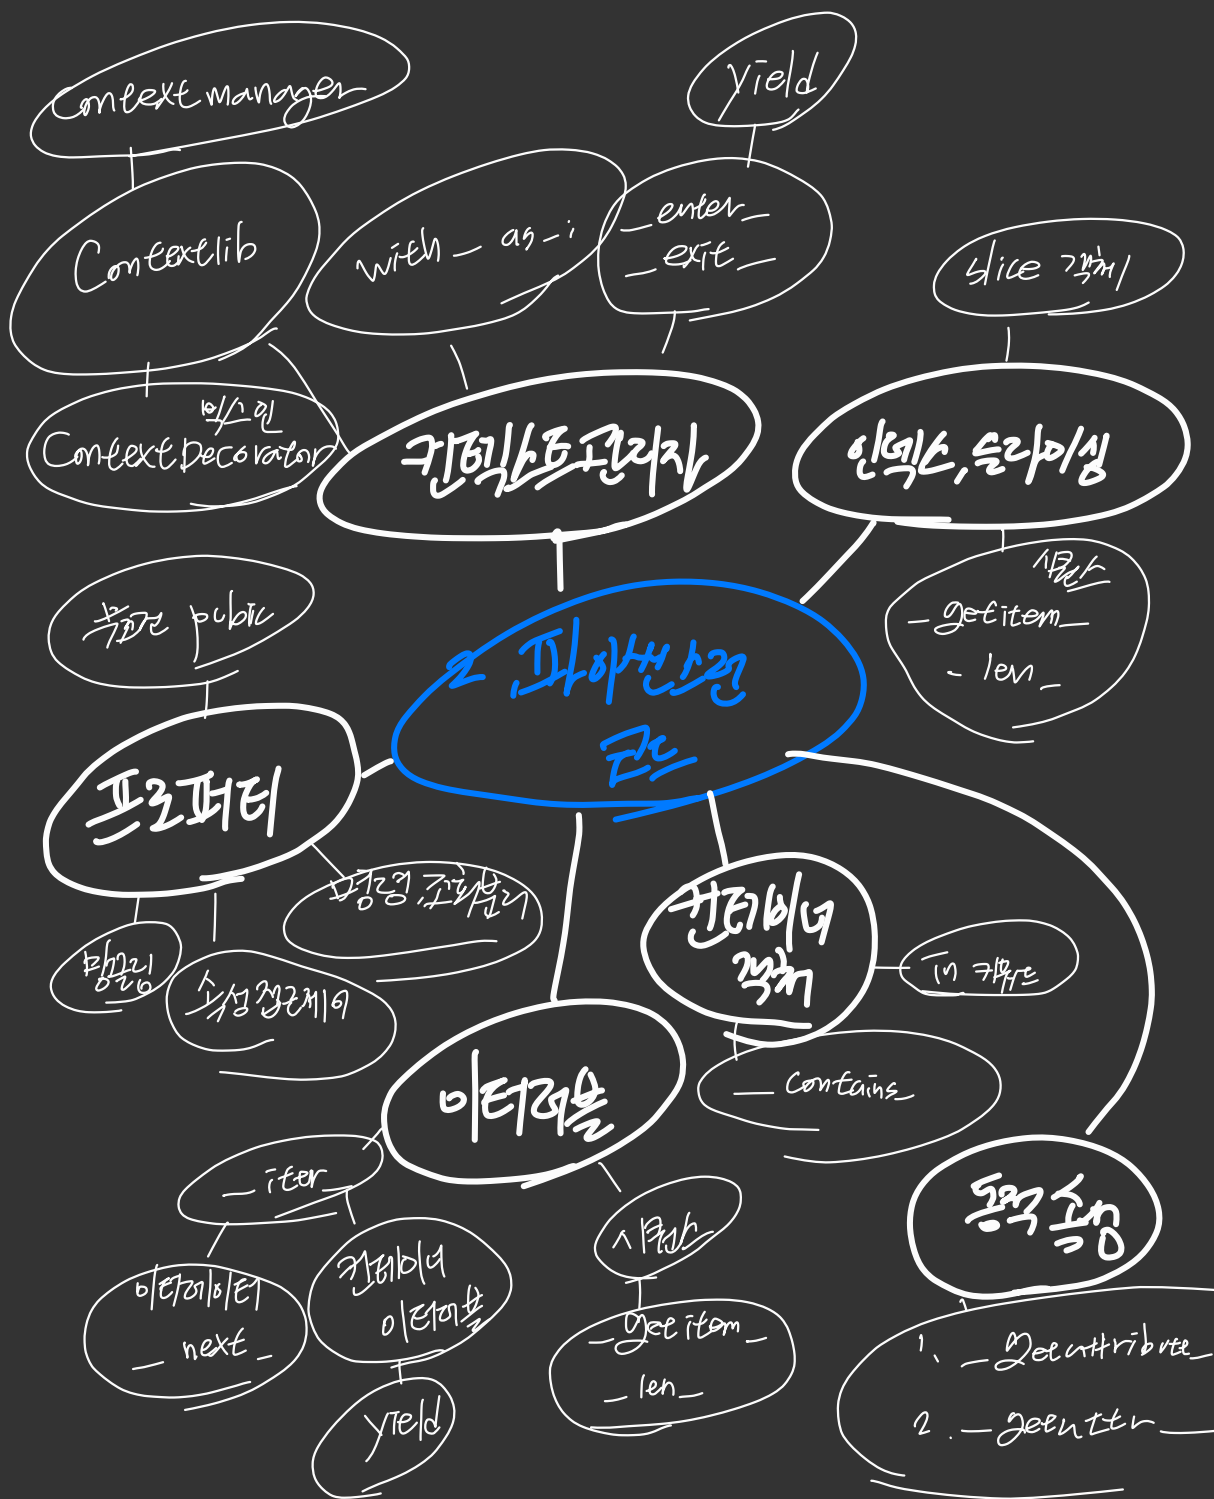 Contextmanager
yield
Contextlib
with _ as _ i
_ enter _
_ exit _
slice 객체
믹스인
ContextDecorator
컨텍스트 관리자
인덱스, 슬라이싱
시퀀스
_ getitem _
_ len _
무조건 pubic
2. 파이썬스런
코드
프로퍼티
명령, 조회분리
망글링
속성 접근제어
컨테이너
객체
in 키워드
_ contains _
이터러블
_ iter _
시퀀스
동적 속성
이터레이터
_ next _
컨테이너
이터러블
_ getitem _
_ len _
yield
1. _ getattribute _
2. _ getattr _